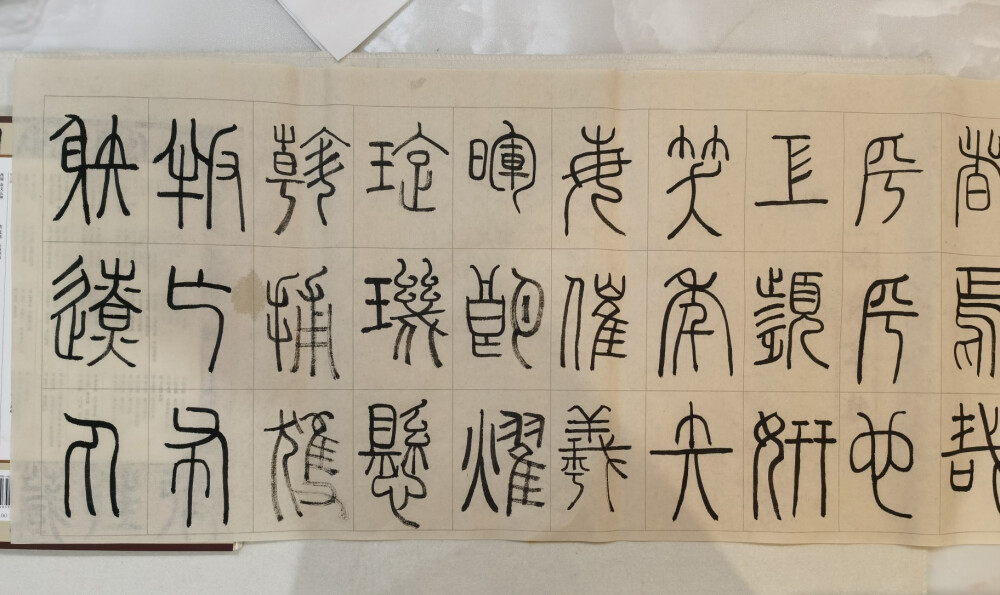 者焉哉
乎乎也
工顰妍
笑年矢
每催羲
暉朗耀
璇璣懸
斡捕獲
叛亡布
射遼丸